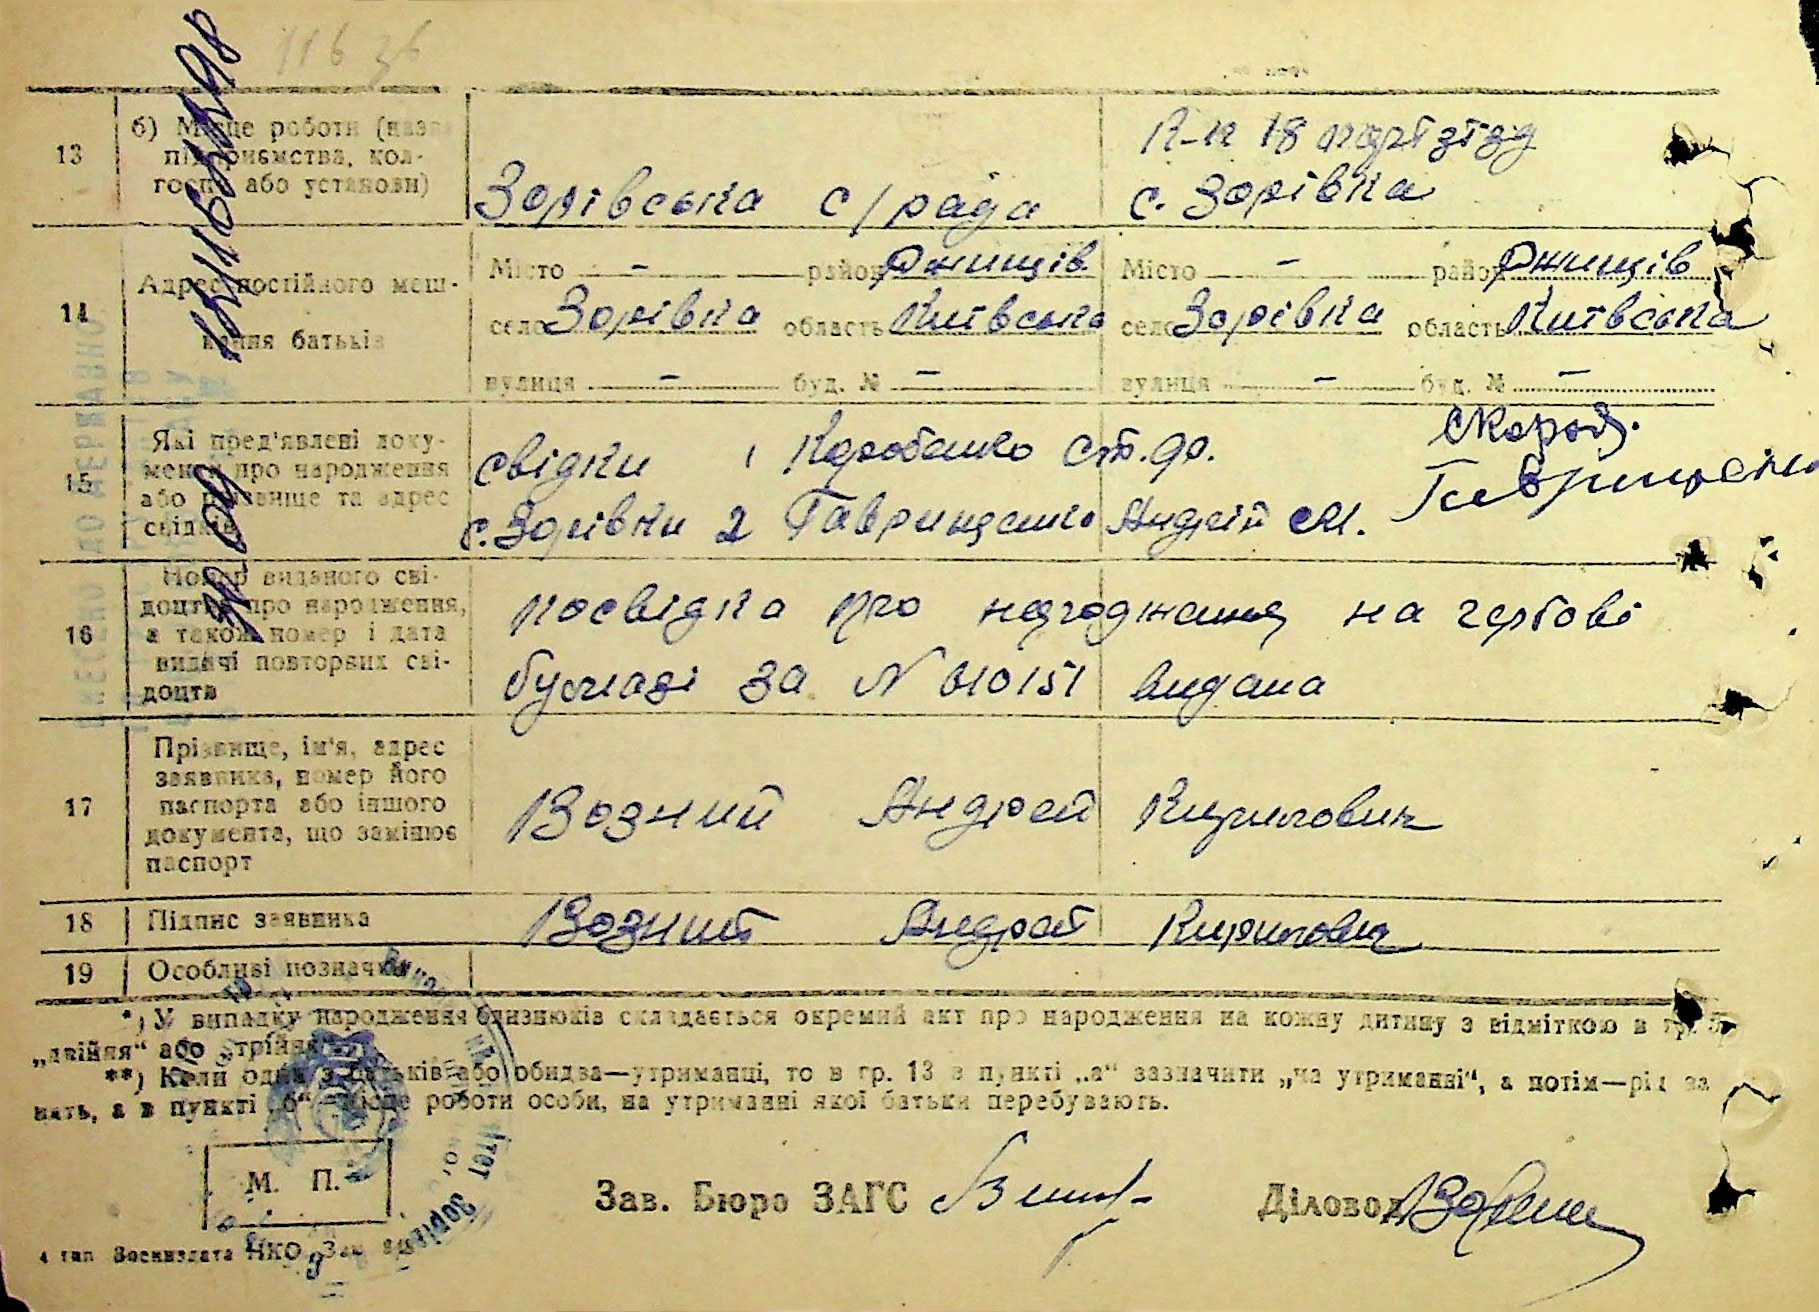 11636
13
б) Місце роботи (назва
підприємства, кол-
госпу або установи)
к-п 18 партзізд
Зорівська с/рада с. Зорівка
14
Адрес постійного меш-
кання батьків
Місто — район Ржищів Місто — район Ржищів
село Зорівка область Київська село Зорівка область Київська
вулиця — буд. № — вулиця — буд. № —
15
Які пред'явлені доку-
менти про народження
або прізвище та адрес
свідків
свідки 1 Коробенко Ст. Фр.
с. Зорівки 2 Гаврищенко Андрій См.
Скороб.
Гаврищенко
16
Номер виданого сві-
доцтва про народження,
а також номер і дата
видачі повторних сві-
доцтв
посвідка про народження на гербові
бумазі за N 010151 видана
17
Прізвище, ім'я, адрес
заявника, номер його
паспорта або іншого
документа, що замінює
паспорт
Возний Андрей Кирилович
18 Підпис заявника Возний Андрей Кирилович
19 Особливі позначки
*) У випадку народження близнюків складається окремий акт про народження на кожну дитину з відміткою в гр. 5
„двійня“ або „трійня“.
**) Коли один з батьків або обидва—утриманці, то в гр. 13 в пункті „а“ зазначити „на утриманні“, а потім—рід за
нять, а в пункті „б“ — місце роботи особи, на утриманні якої батьки перебувають.
М. П.
Зав. Бюро ЗАГС
Діловод
4 тип Воениздата НКО Зак